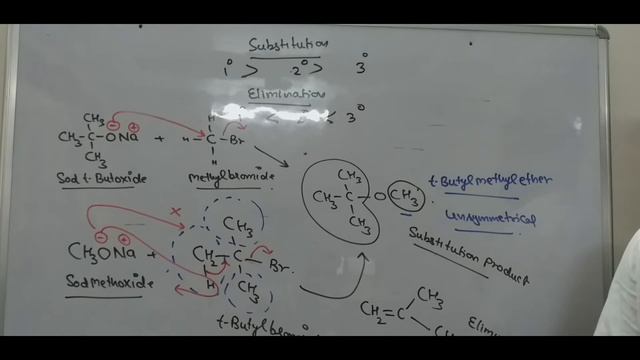 Substitution
1° > 2° > 3°
Elimination
1° < 2° < 3°
CH3
CH3-C-ONa + H-C-Br
CH3
H
H
Sod t-Butoxide
methylbromide
CH3
CH3-C-O-CH3
CH3
t-Butylmethylether
Unsymmetrical
Substitution Product
x
CH3
CH3ONa + CH2-C-Br
H
CH3
Sod methoxide
t-Butylbrom
CH3
CH2=C
CH
Elim